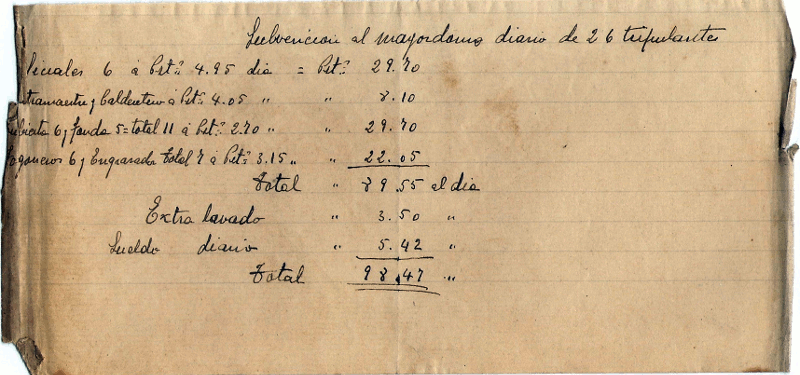 Subvencion al mayordomo diario de 26 tripulantes
iciales 6 á Pst.ˢ 4.95 dia = Pst.ˢ 29.70
ntramaestre y Calderetero á Pst.ˢ 4.05 " " 8.10
ubierta 6 y fonda 5 = total 11 á Pst.ˢ 2.70 " " 29.70
ogoneros 6 y Engrasador total 7 á Pst.ˢ 3.15 " " 22.05
Total " 89.55 al dia
Extra lavado " 3.50 "
Sueldo diario " 5.42 "
Total 98.47 "